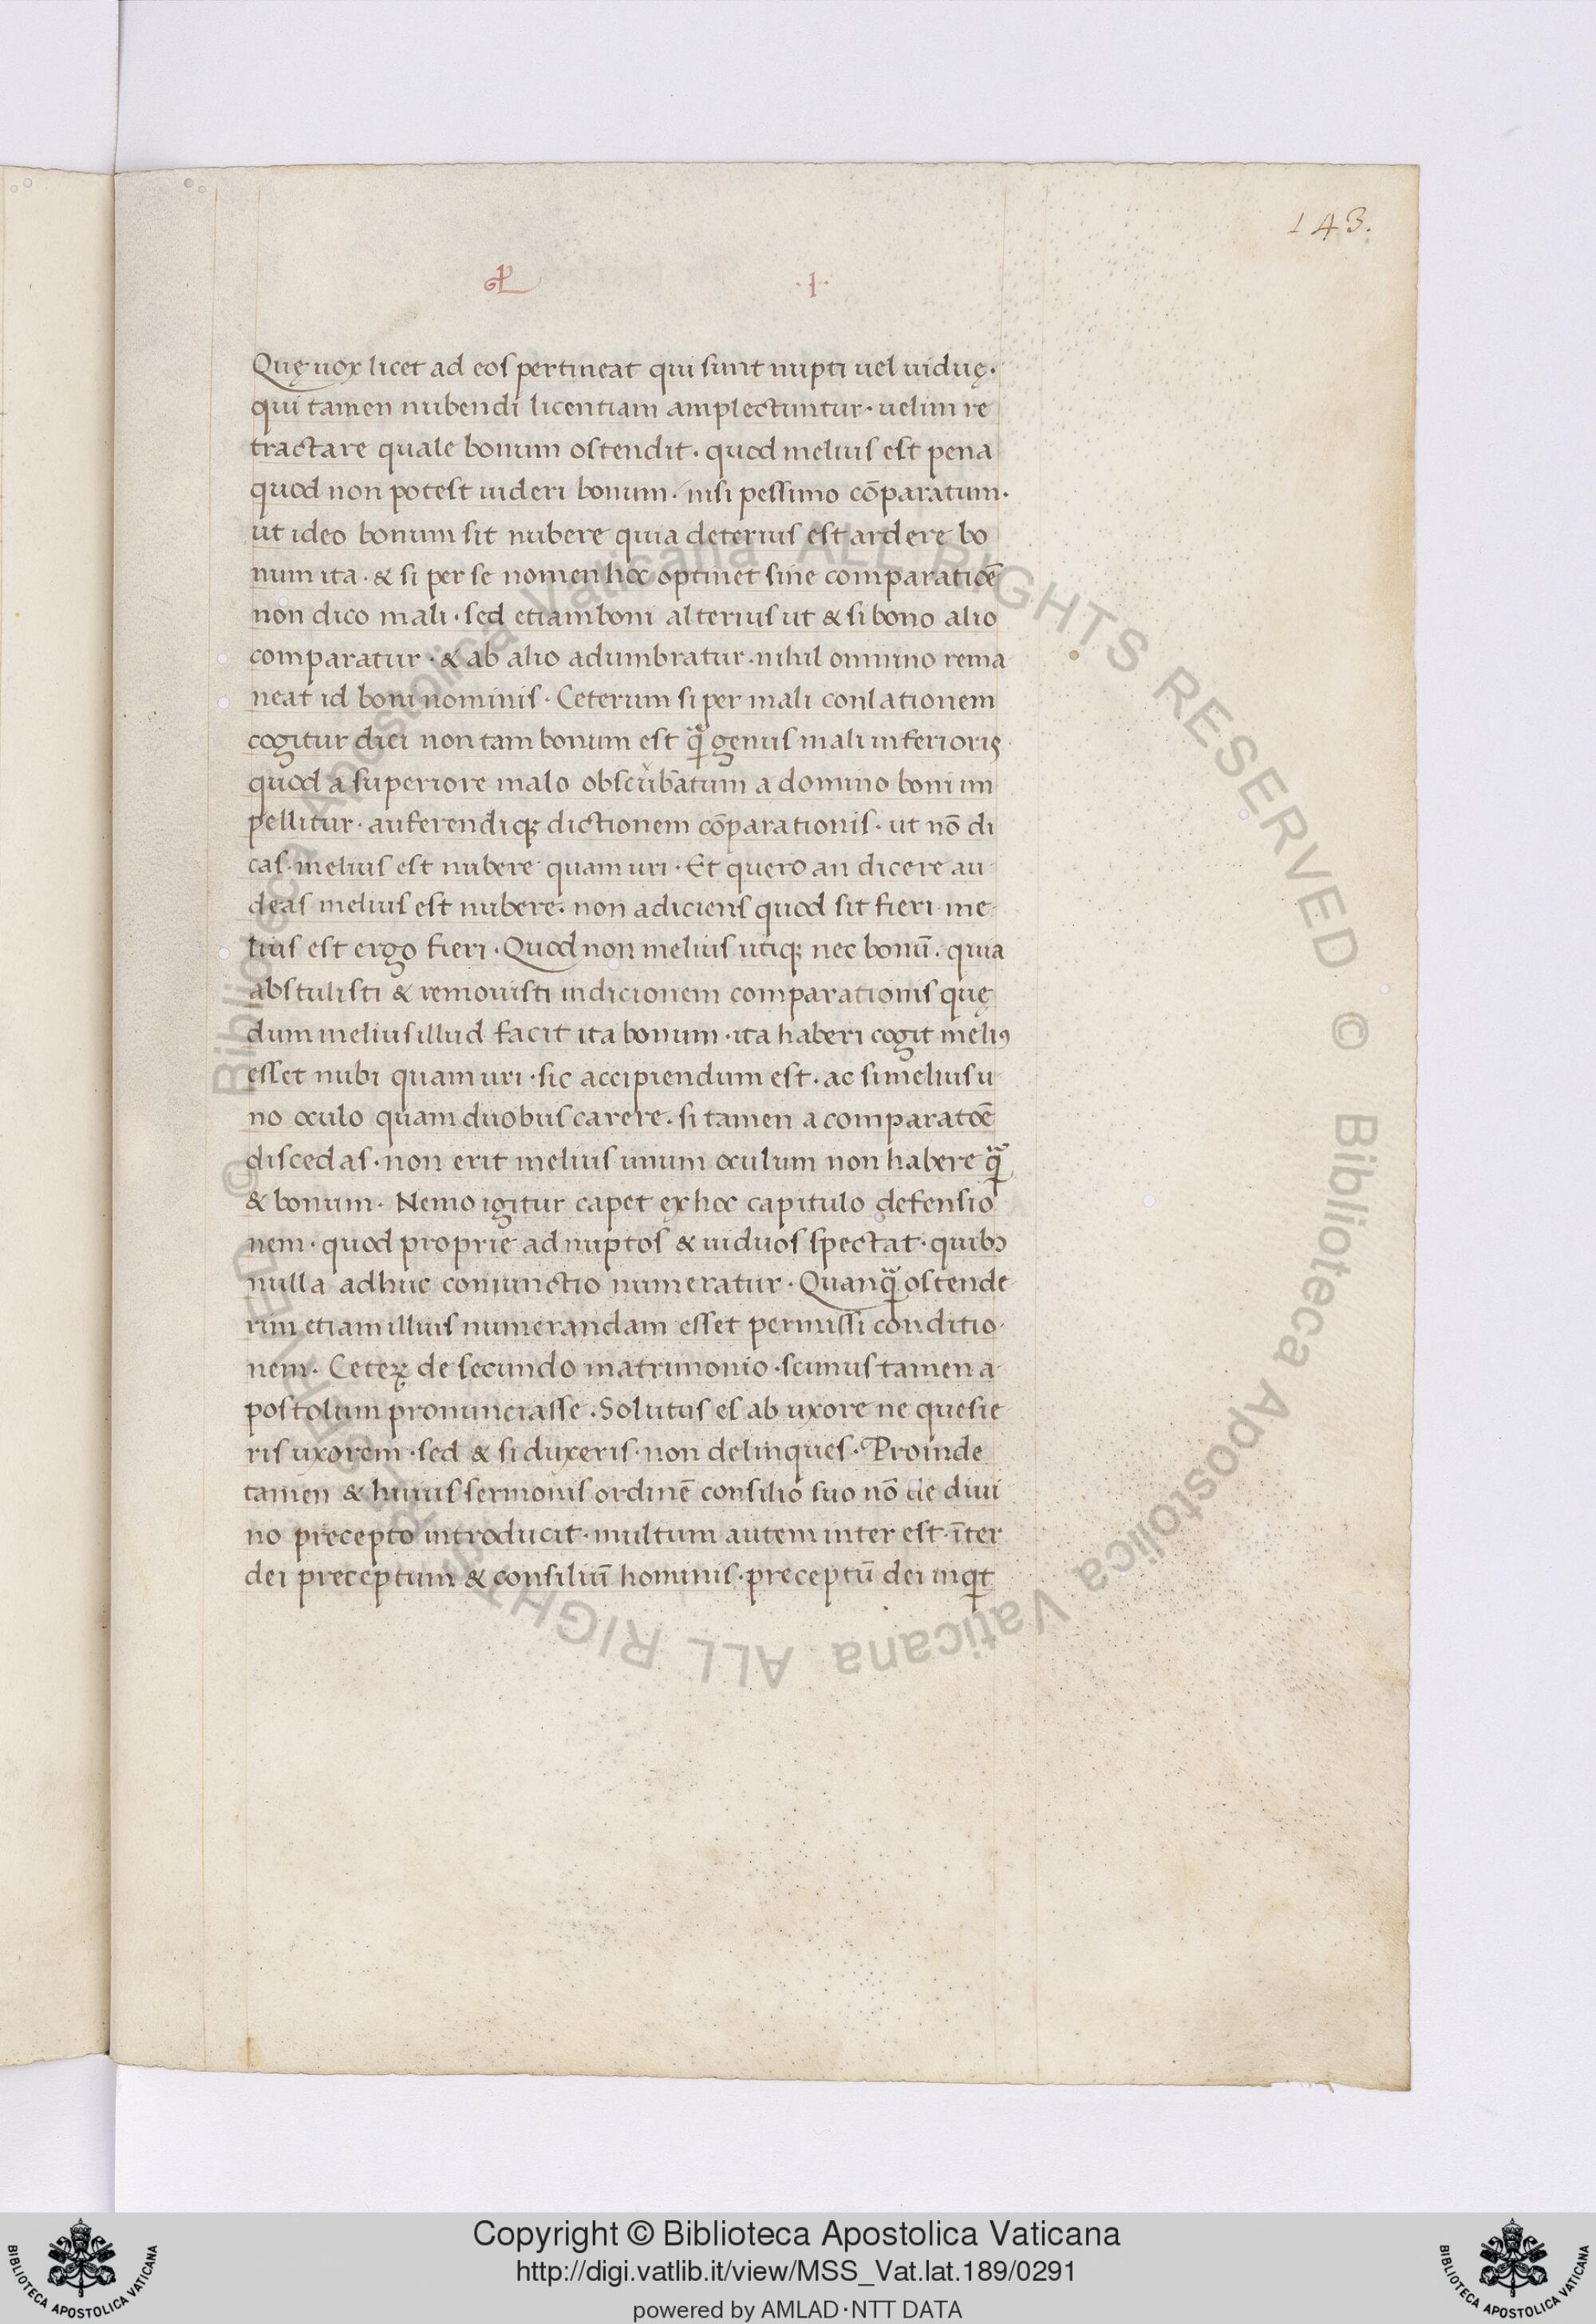 143.
·I·
Quę uox licet ad eos pertineat qui sunt nupti uel uiduę·
qui tamen nubendi licentiam amplectuntur· uelim re
tractare quale bonum ostendit· quod melius est pena
quod non potest uideri bonum· nisi pessimo cōparatum·
ut ideo bonum sit nubere quia deterius est ardere bo
num ita· & si per se nomen hoc optinet sine comparatiōe
non dico mali· sed etiam boni alterius ut & si bono alio
comparatur· & ab alio adumbratur· nihil omnino rema
neat id boni nominis· Ceterum si per mali conlationem
cogitur dici non tam bonum est qᷓ genus mali inferioris
quod a superiore malo obscurbatum a domino boni im
pellitur· auferendiqꝫ dictionem cōparationis· ut nō di
cas· melius est nubere quam uri· Et quero an dicere au
deas melius est nubere· non adiciens quod sit fieri me
lius est ergo fieri· Quod non melius utiqꝫ nec bonū· quia
abstulisti & remouisti indicionem comparationis quę
dum melius illud facit ita bonum· ita haberi cogit meliꝰ
esset nubi quam uri· sic accipiendum est· ac si melius u
no oculo quam duobus carere· si tamen a comparatōe
discedas· non erit melius unum oculum non habere qᷓ
& bonum· Nemo igitur capet ex hoc capitulo defensio
nem· quod proprie ad nuptos & uiduos spectat· quibꝯ
nulla adhuc coniunctio numeratur· Quanqᷓ ostende
rim etiam illius numerandam esset permissi conditio
nem· Ceteꝝ de secundo matrimonio· scimus tamen a
postolum pronunciasse· Solutus es ab uxore ne quesie
ris uxorem· sed & si duxeris· non delinques· Proinde
tamen & huius sermonis ordinē consilio suo nō de diui
no precepto introducit· multum autem inter est· īter
dei preceptum & consiliū hominis· preceptū dei inqͥt
Copyright © Biblioteca Apostolica Vaticana
http://digi.vatlib.it/view/MSS_Vat.lat.189/0291
powered by AMLAD·NTT DATA
BIBLIOTECA APOSTOLICA VATICANA
BIBLIOTECA APOSTOLICA VATICANA
© Biblioteca Apostolica Vaticana ALL RIGHTS RESERVED © Biblioteca Apostolica Vaticana ALL RIGHTS RESERVED